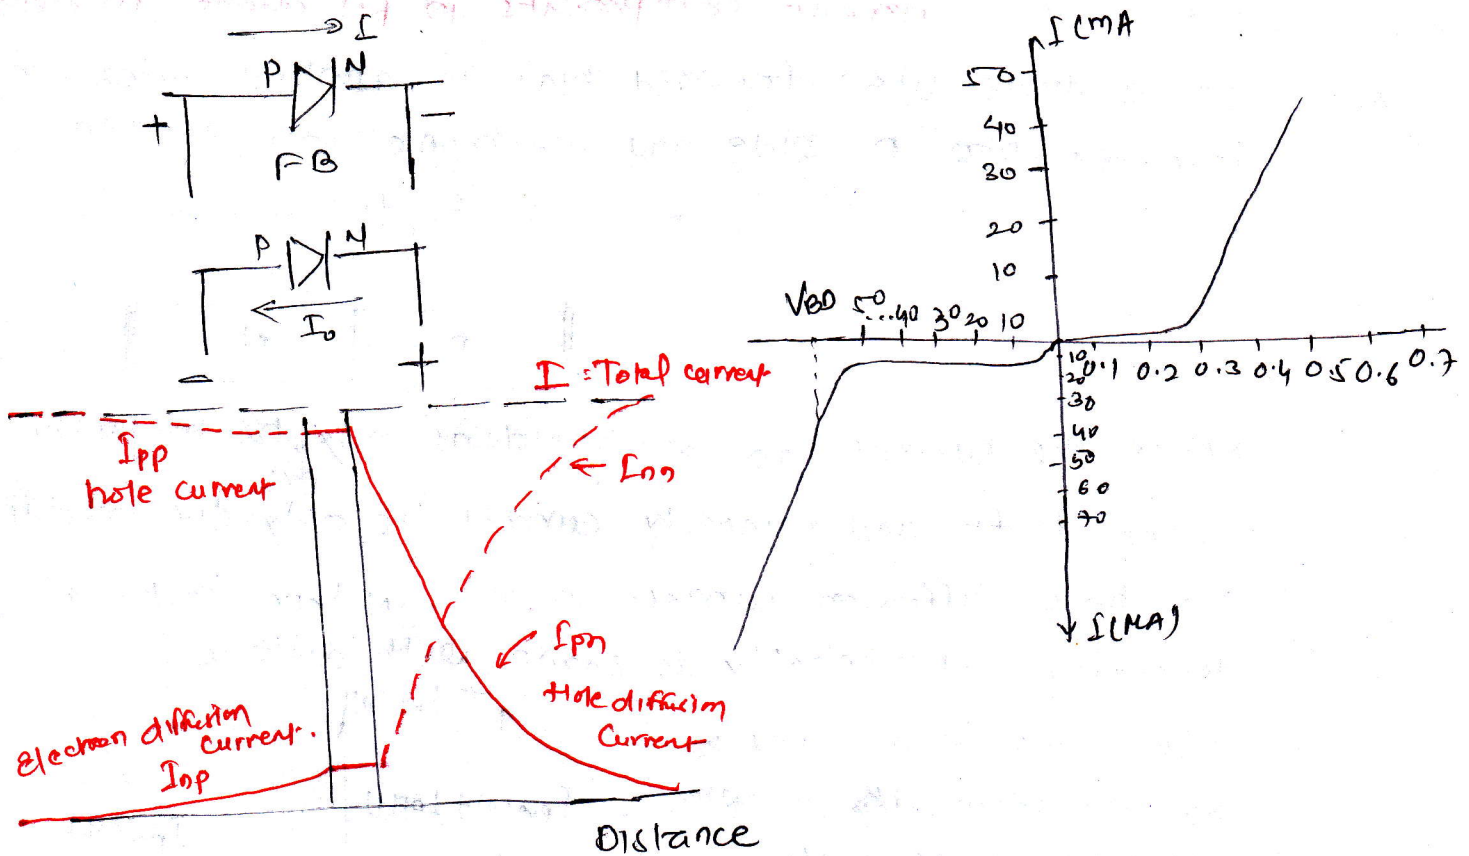 I
P N
+ −
FB
P N
I₀
− +
I = Total current
Ipp
hole current
Inn
Ipn
Hole diffusion
Current
Electron diffusion
Current.
Inp
Distance
I (mA
50
40
30
20
10
VBD 50...40 30 20 10
0.1 0.2 0.3 0.4 0.5 0.6 0.7
10
20
30
40
50
60
70
I(MA)